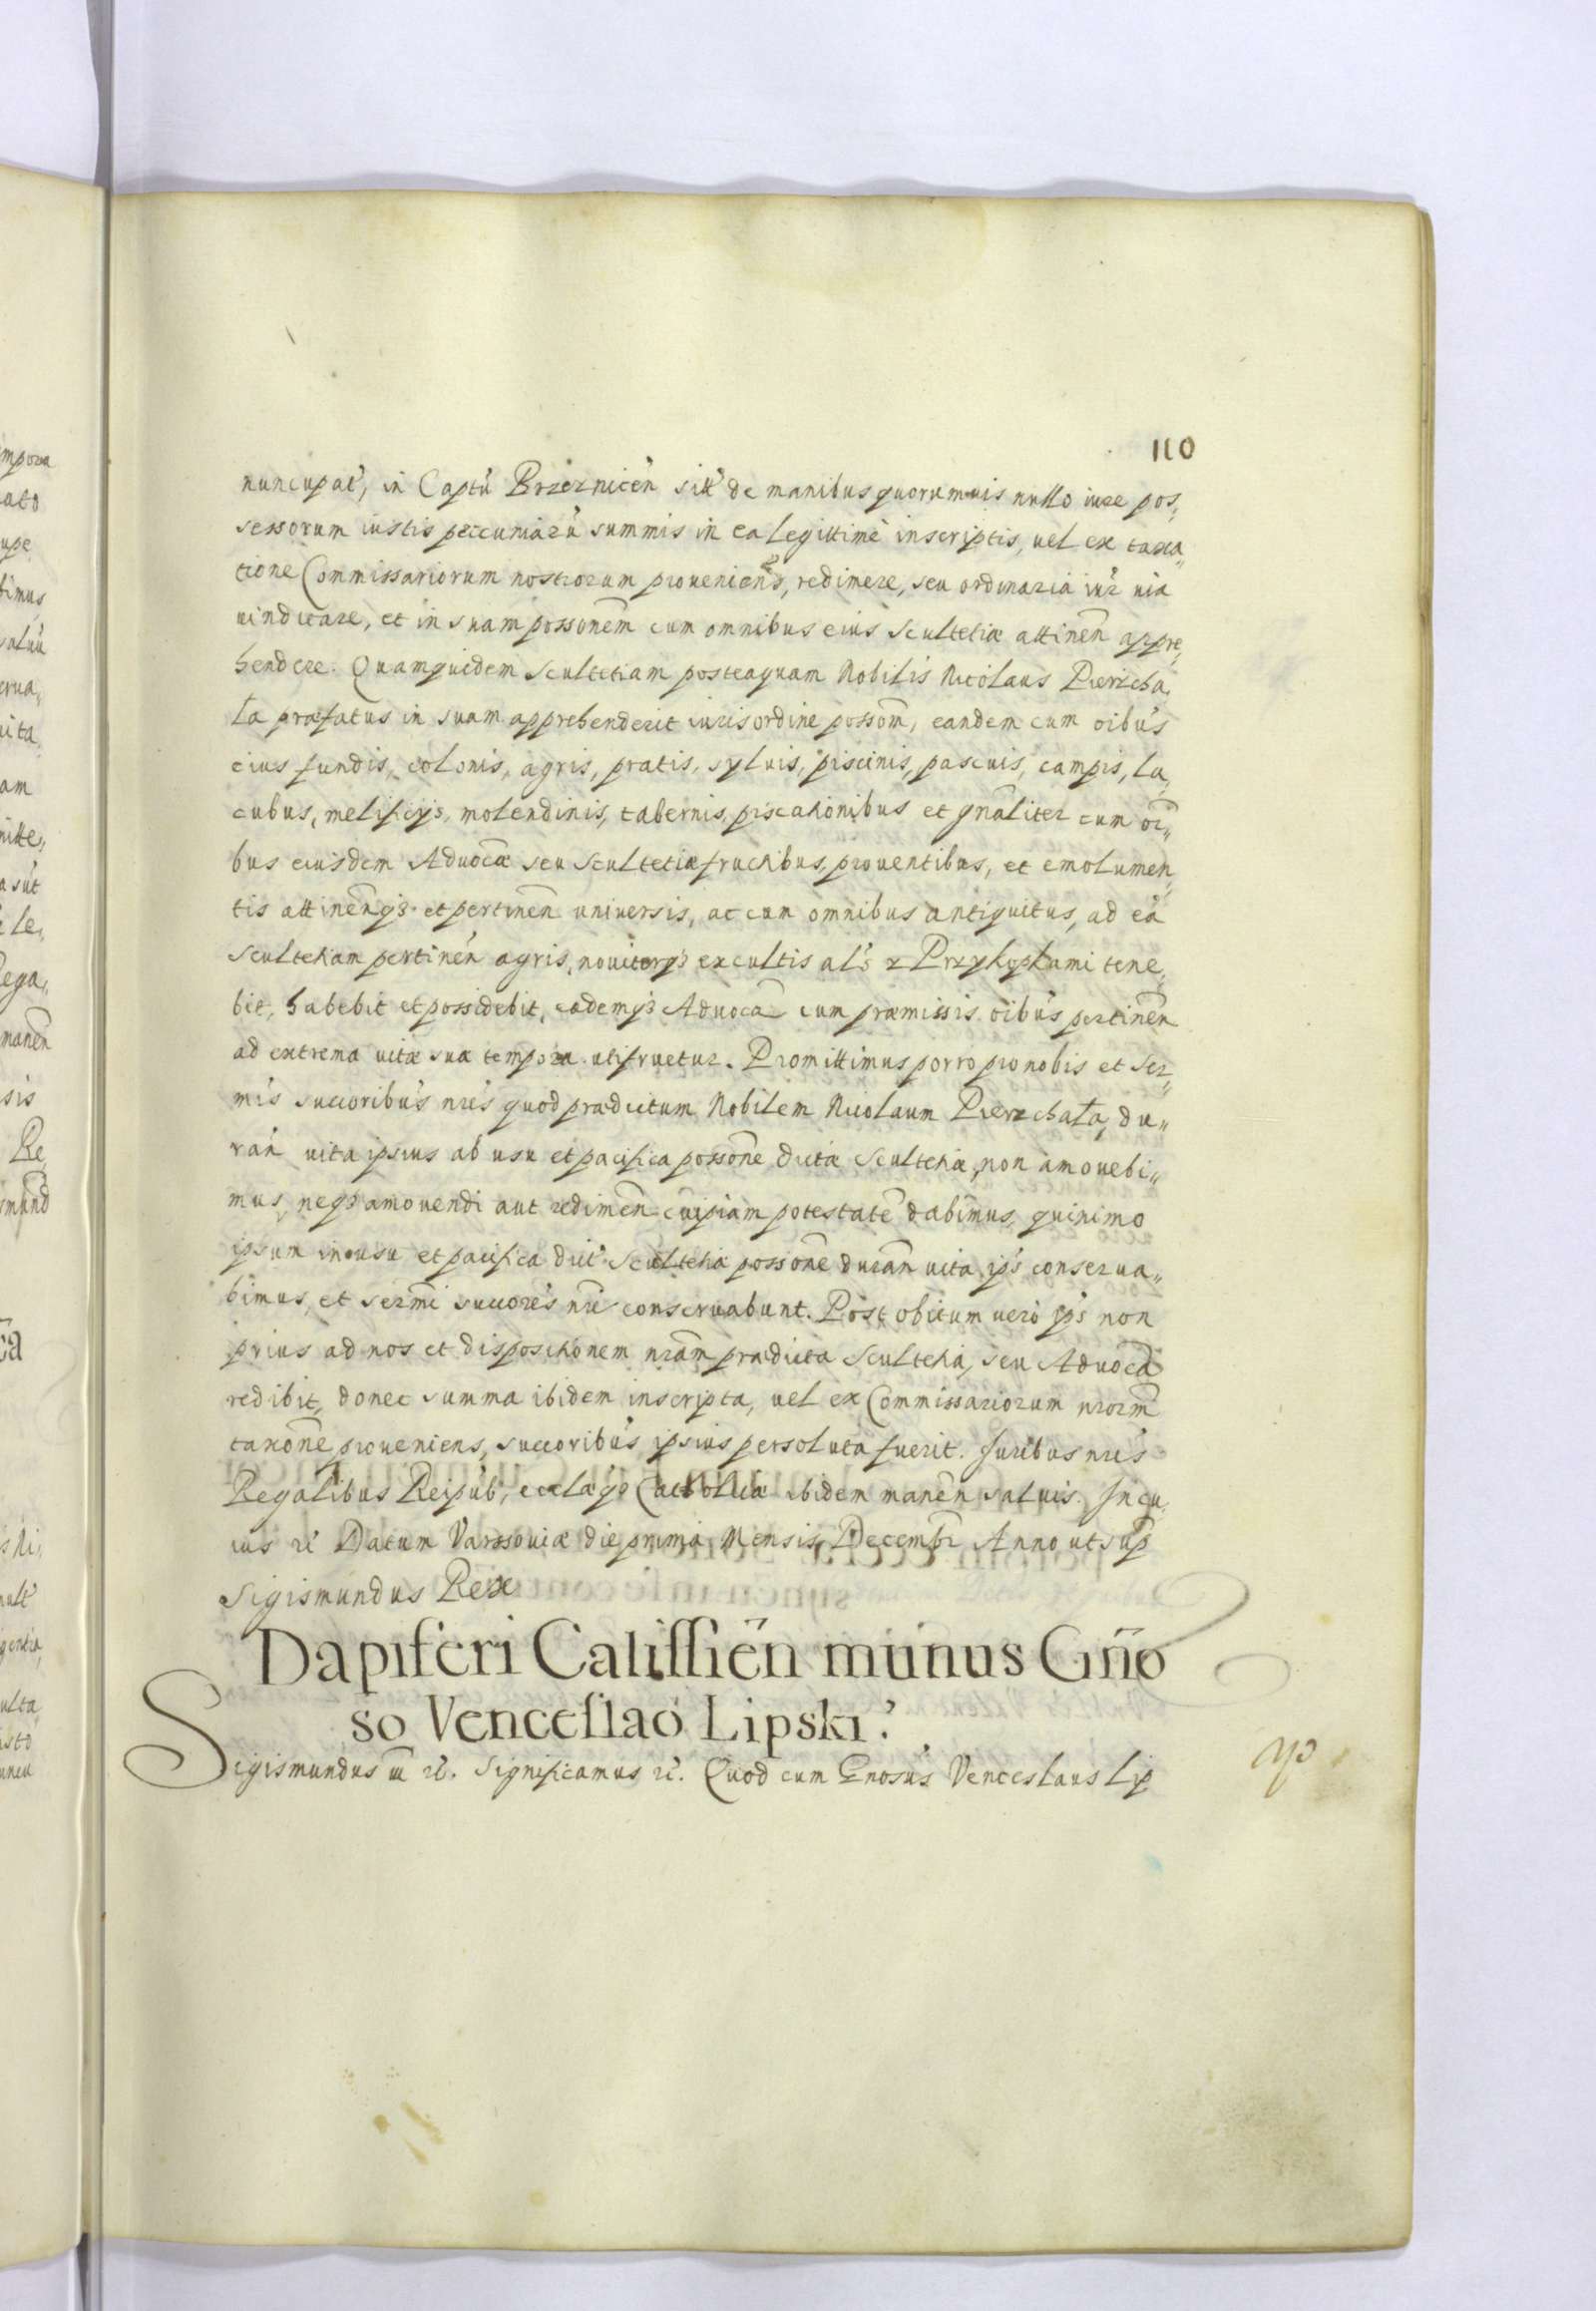 110
nuncupat', in Captu Brzeznicen sitt de manibus quorumuis nullo iure pos,,
sessorum iustis peccuniaru summis in ea legittime inscriptis, uel ex taxa,,
tione Commissariorum nostrorum proueniens, redimere, seu ordinaria iur uia
uindicare, et in suam possonem cum omnibus eius scultetiæ attinen appre,,
hendere. Quamquidem scultetiam posteaquam Nobilis Nicolaus Pierzcha,,
la præfatus in suam apprehenderit iuris ordine possom, eandem cum oibus
eius fundis, colonis, agris, pratis, syluis, piscinis, pascuis, campis, la,,
cubus, melificijs, molendinis, tabernis, piscationibus et gnaliter cum oi,,
bus eiusdem Aduocæ seu Scultetiæ fructibus, prouentibus, et emolumen,,
tis attinenq3 et pertinen uniuersis, ac cum omnibus antiquitus, ad ea
scultetiam pertinen agris, nouiterq3 excultis als z Przykopkami tene,,
bit, habebit et possidebit, eademq3 Aduoca cum præmissis oibus pertinen
ad extrema uitæ suæ tempora utifruetur. Promittimus porro pro nobis et Ser,,
mis succoribus nris quod prædictum Nobilem Nicolaum Pierzchała, du,,
ran uita ipsius ab usu et pacifica possone dictæ Scultetiæ, non amouebi,,
mus, neq3 amouendi aut redimen cuipiam potestate dabimus, quinimo
ipsum in usu et pacifica dict' Scultetiæ possone duran uita ips conserua,,
bimus, et sermi succores nri conseruabunt. Post obitum uero ips non
prius ad nos et dispositionem nram prædicta Scultetia, seu Aduoca
redibit, donec summa ibidem inscripta, uel ex Commissariorum nrorm
taxone proueniens, succoribus ipsius persoluta fuerit. Iuribus nris
Regalibus Reipub, eccláeq3 Cattolicæ ibidem manen saluis. In cu,,
ius rei Datum Varssouiæ die prima Mensis Decembr Anno ut sup
Sigismundus Rex
Dapiferi Calissien munus Gño
so Venceslao Lipski.
Sigismundus III rc. Significamus rc. Quod cum Gnosus Venceslaus Lip